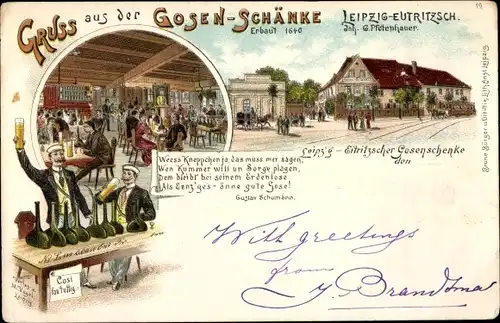 GRUSS aus der GOSEN-SCHÄNKE
Erbaut 1640
LEIPZIG-EUTRITZSCH.
Inh. G. Pfotenhauer.
Weess Kneppchen jo, das muss mer sagen,
Wen Kummer will un Sorge plagen,
Dem bleibt bei seinem Erdenlose
Als Eenz'ges - änne gute Gose!
Gustav Schumann.
Leipz'g - Eitritzscher Gosenschenke
den
With greetings
from
J. Brandtma
Gosi